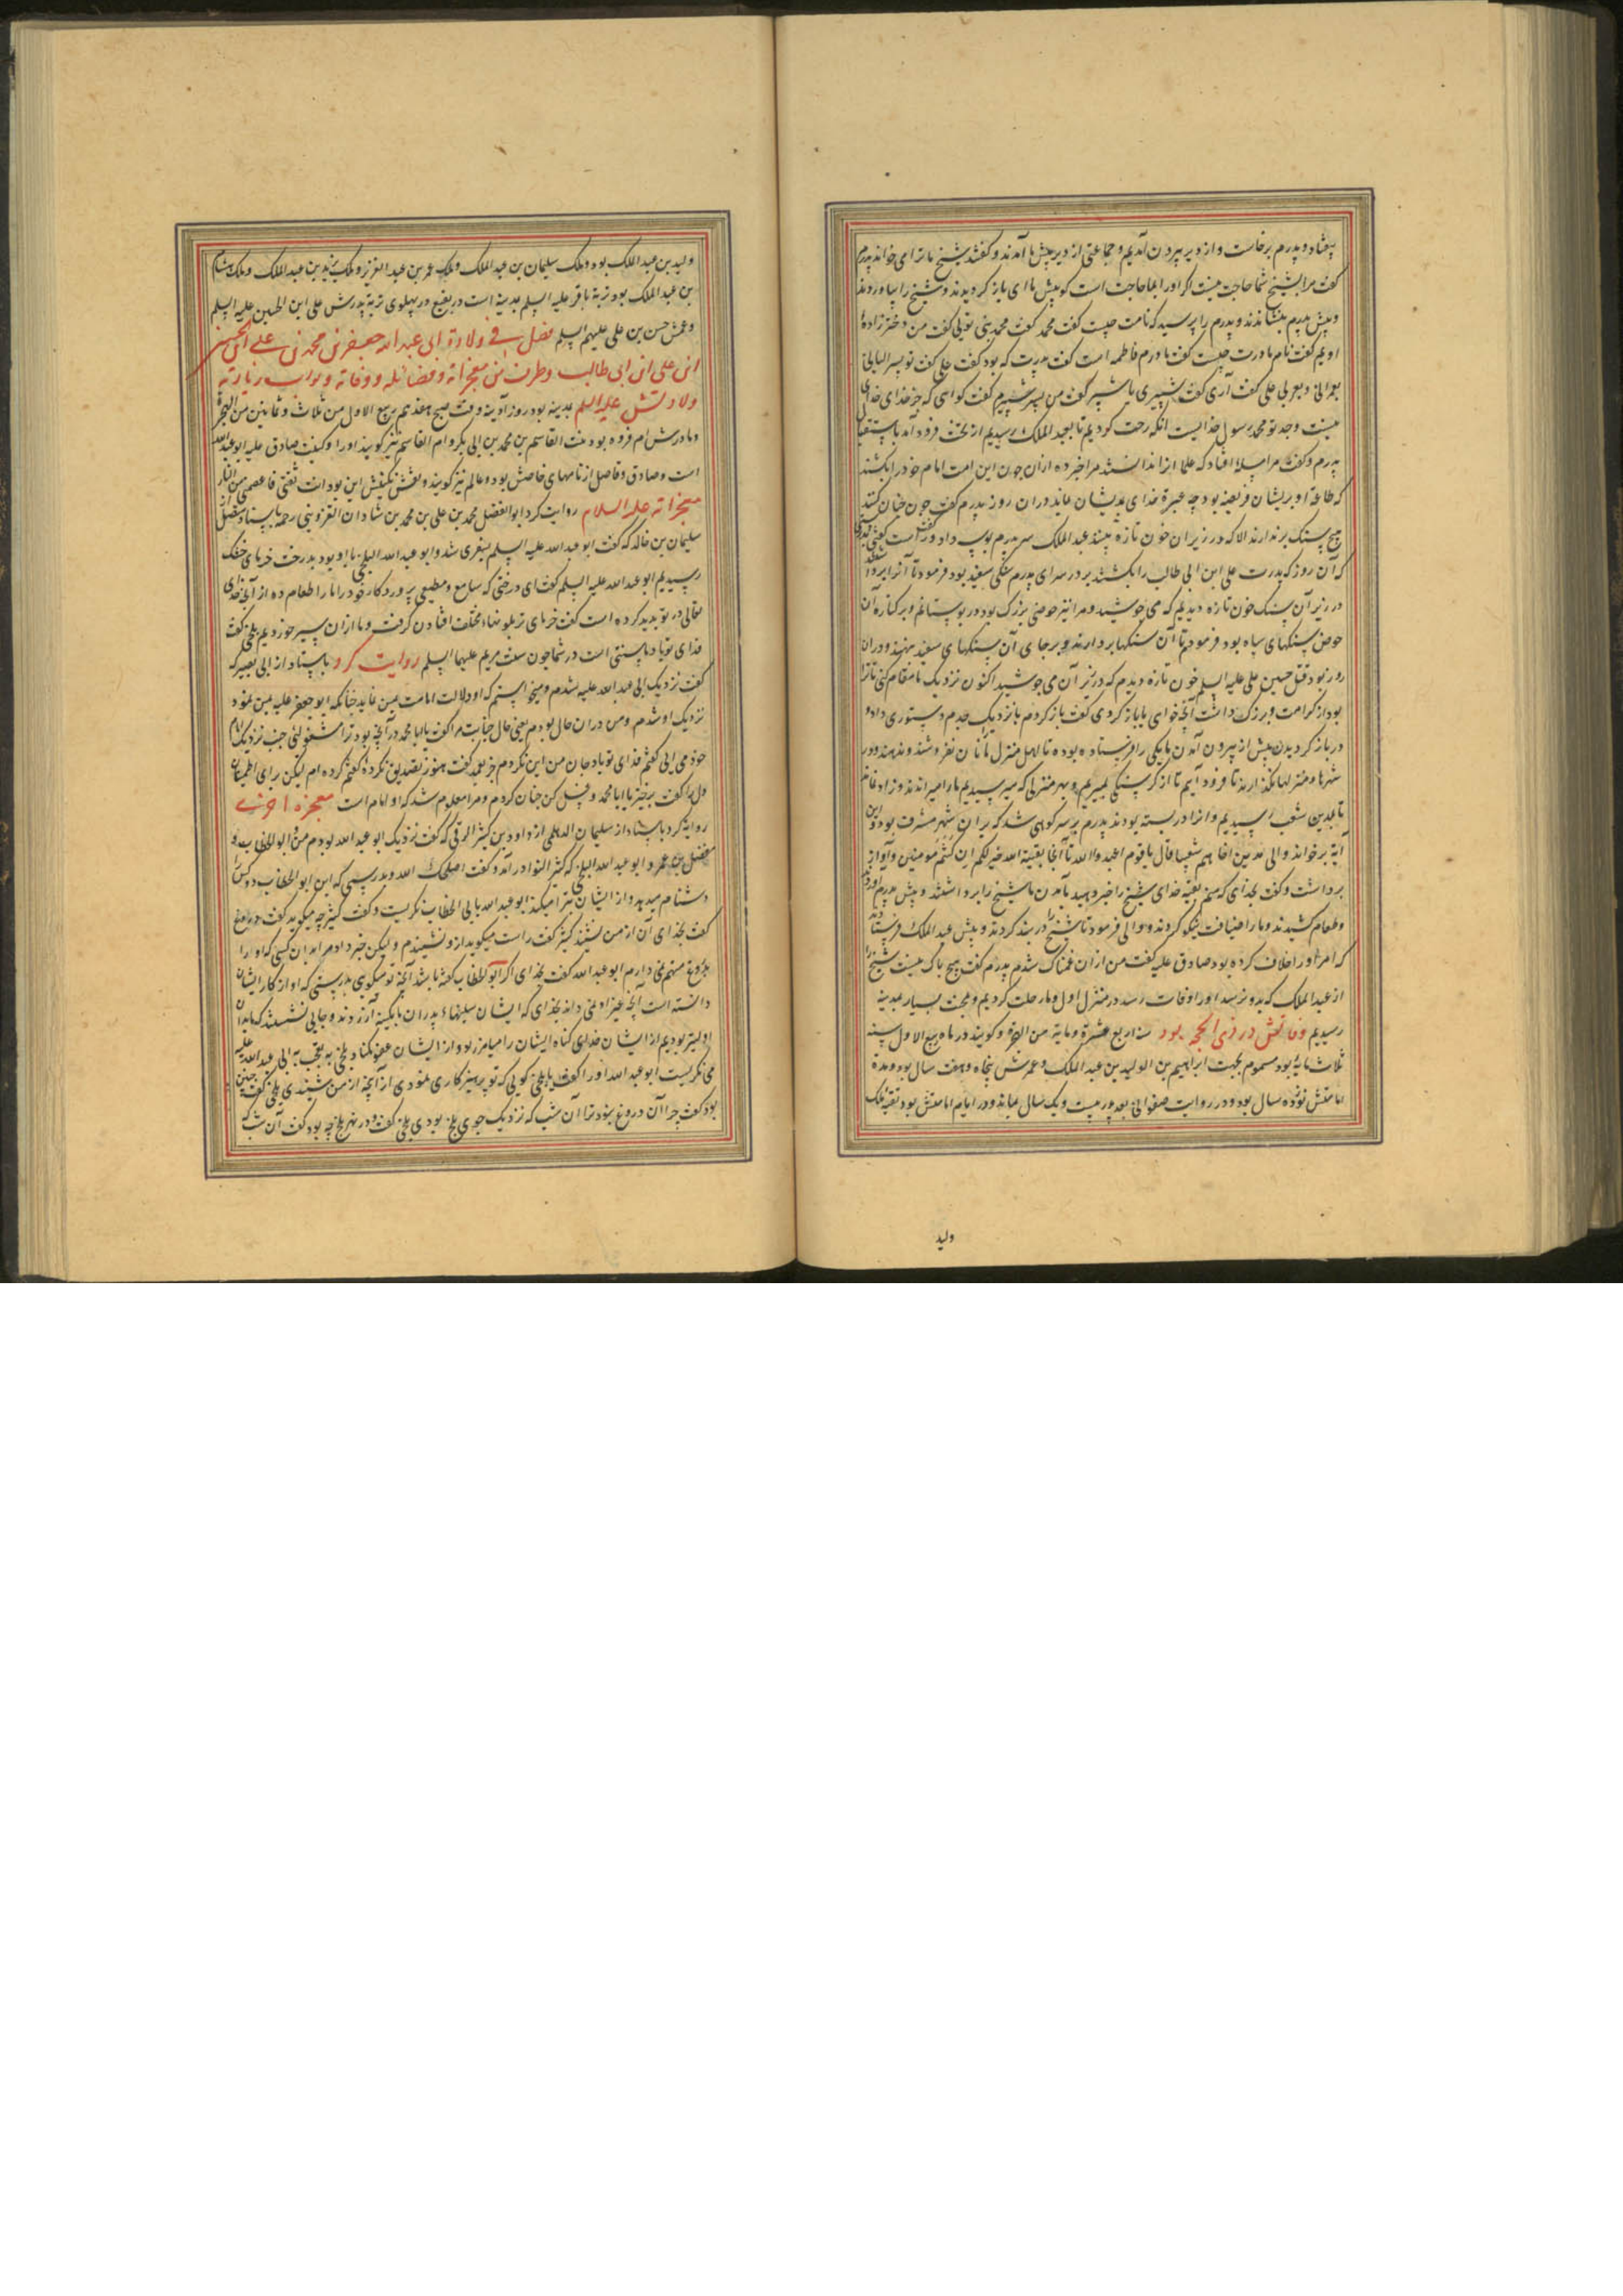 بیفتاد و پدرم برخاست و از دیر بیرون آمدیم و جماعتی از دیر پیش ما آمدند و گفتند شیخ ما ترا می خواند پدرم
گفت مرا بشیخ شما حاجت نیست اگر او را بما حاجت است گو پیش ما آی باز گردیدند و شیخ را بیاوردند
و پیش پدرم بنشاندند و پدرم را پرسید که نامت چیست گفت محمد گفت محمد نبی توئی گفت من دخترزادهٔ
اویم گفت نام مادرت چیست گفت مادرم فاطمه است گفت پدرت که بود گفت علی گفت تو پسر الیائی
بعبرانی و بعربی علی گفت آری گفت شبیری یا شبر گفت من پسر شبیرم گفت گواهی که جز خدای خدای
نیست و جد تو محمد رسول خدایست انگه رحلت کردیم تا بعبد الملک رسیدیم از تخت فرود آمد باستقبال
پدرم و گفت مرا مسله افتاد که علما انرا ندانستند مرا خبر ده ازان چون این امت امام خود را بکشند
که طاعة او بریشان فریضه بود چه عبرة خدای بدیشان نماید دران روز پدرم گفت چون چنان کنند
هیچ سنگ برندارند الا که در زیر ان خون تازه بینند عبد الملک سر پدرم بوسه داد و گفت راست گفتی
که آن روز که پدرت علی ابن ابی طالب را بکشتند بر در سرای پدرم سنگی سفید بود فرمود تا آنرا برداشتند
در زیر آن سنگ خون تازه دیدیم که می جوشید و مرا نیز حوضی بزرگ بود در بوستانم و بر کنارهٔ آن
حوض سنگهای سیاه بود فرمودم تا آن سنگها بردارند و بر جای آن سنگهای سفید بنهند و دران
روز بود قتل حسین علی علیه السلم خون تازه دیدم که در زیر آن می جوشید اکنون نزدیک ما مقام کنی تا ترا
بود از کرامت و بزرگ داشت آنچه خواهی یا باز گردی گفت باز گردم با نزدیک جدم دستوری داد و
در باز گردیدن پیش از بیرون آمدن ما یکی را فرستاده بود تا اهل منزل ما را نان نفروشند و ندهند و در
شهرها و منزلها نگذارند تا فرود آیم تا از گرسنگی بمیریم و بهر منزلی که میرسیدیم ما را میراندند و زاد فانی
تا بمدین شعیب رسیدیم و انرا در بسته بودند پدرم بر سر کوهی شد که بر ان شهر مشرف بود و این
آیة برخواند و الی مدین اخاهم شعیبا قال یا قوم اعبدوا الله تا آنجا بقیة الله خیر لکم ان کنتم مومنین و آواز
برداشت و گفت بخدای که منم بقیهٔ خدای شیخ را خبر دهید بآمدن ما شیخ را برداشتند و پیش پدرم آوردند
و طعام کشیدند و ما را ضیافت نیکو کردند و والی فرمود تا شیخ را در بند کردند و پیش عبد الملک فرستادند
که امر او را خلاف کرده بود صادق علیه گفت من ازان غمناک شدم پدرم گفت هیچ باک نیست شیخ را
از عبد الملک که بدو نرسد او را وفات رسد در منزل اول و ما رحلت کردیم و بمحنت بسیار بمدینه
رسیدیم وفاتش در ذی الحجه بود سنه اربع عشرة و مایة من الهجرة و گویند در ماه ربیع الاول سنه
ثلاث مایة بود مسموم بجهت ابراهیم بن الولید بن عبد الملک و عمرش پنجاه و هفت سال بود و مدة
امامتش نوزده سال بود و در روایت صفوانی بعد پدر بیست و یک سال بماند و در ایام امامتش بود بقیهٔ ملک
ولید
ولید بن عبد الملک بود و ملک سلیمان بن عبد الملک و ملک عمر بن عبد العزیز و ملک یزید بن عبد الملک و ملک هشام
بن عبد الملک بود تربة باقر علیه السلم بمدینه است در بقیع در پهلوی تربة پدرش علی ابن الحسین علیه السلم
و عمش حسن بن علی علیهم السلم فصل فی ولادة ابی عبد الله جعفر بن محمد بن علی ابن الحسین
ابن علی ابن ابی طالب و طرف من معجزاته و فضائله و وفاته و ثواب زیارته
ولادتش علیه السلم بمدینه بود روز آدینه وقت صبح هفدهم ربیع الاول من ثلاث و ثمانین من الهجرة
و مادرش ام فروه بود بنت القاسم بن محمد بن ابی بکر و ام القاسم نیز گویند او را و کنیت صادق علیه ابو عبد الله
است و صادق و فاضل از نامهای خاصش بود و عالم نیز گویند و نقش نگینش این بود انت ثقتی فاعصمنی من النار
معجزاته علیه السلام روایت کرد ابو الفضل محمد بن علی بن محمد بن شادان القزوینی رحمه باسناد مفضل از
سلیمان بن خاله که گفت ابو عبد الله علیه السلم بسفری شد و ابو عبد الله البلخی با او بود بدرخت خرمای خشک
رسیدیم ابو عبد الله علیه السلم گفت ای درختی که سامع و مطیعی پروردگار خود را ما را طعام ده از آنچه خدای
تعالی در تو بدید کرده است گفت خرمای تر بلونها مختلف افتادن گرفت و ما ازان سیر خوردیم بلخی گفت
فدای تو باد ما سنتی است در شما چون سنت مریم علیها السلم روایت کرد باسناد از ابی بصیر که
گفت نزدیک ابی عبد الله علیه شدم و میخواستم که او دلالت امامت بمن نماید چنانکه ابو جعفر علیه بمن نمود
نزدیک او شدم و من دران حال بودم یعنی حال جنابت مرا گفت یا ابا محمد در آنچه بود ترا مشغولی جنب نزدیک امام
خود می ایی گفتم فدای تو باد جان من این نکردم جز بعمد گفت هنوز تصدیق نکرده گفتم کرده ام لیکن برای اطمینان
دل را گفت برخیز یا ابا محمد و غسل کن چنان کردم و مرا معلوم شد که او امام است معجزه اخری
روایة کرد باسناد از سلیمان الدیلمی از داود بن کثیر الرقی که گفت نزدیک ابو عبد الله بودم من و ابو الخطاب و
مفضل بن عمر و ابو عبد الله البلخی که کثیر النوا در آمد و گفت اصلحک الله و بدرستی که این ابو الخطاب دو کس را
دشنام میدهد و از ایشان تبرا میکند ابو عبد الله بابی الخطاب نگریست و گفت کثیر چه میگوید گفت دروغ
گفت بخدای آن از من نشنید کثیر گفت راست میگوید ازو نشنیدم و لیکن خبر داد مرا بدان کسی که او را
بدروغ متهم نمی دارم ابو عبد الله گفت بخدای اگر ابو الخطاب گفته باشد آنچه تو میگویی بدرستی که او از کار ایشان
دانسته است آنچه غیر او نمی داند بخدای که ایشان سلبهاء پدران ما بکینه آزردند و جایی نشستند که ما بدان
اولیتر بودیم از ایشان خدای گناه ایشان را میامرزد و از ایشان عفو نکناد بلخی بتعجب به ابی عبد الله علیه
می نگریست ابو عبد الله او را گفت یا بلخی گویی که تو پرهیزکاری نمودی از آنچه از من شنیدی بلخی گفت چنین
بود گفت چرا آن دروغ نبود ترا آن شب که نزدیک جوی بلخ بودی بلخی گفت و در نهر بلخ چه بود گفت آن شب که